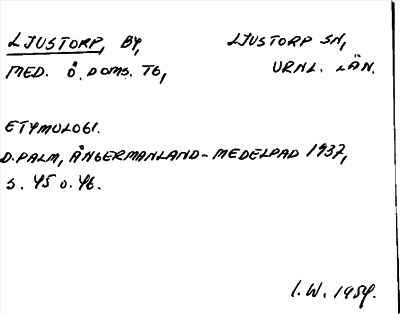 LJUSTORP, BY, LJUSTORP SN,
MED. Ö. DOMS. TG, VRNL. LÄN.
ETYMOLOGI.
D. PALM, ÅNGERMANLAND-MEDELPAD 1937,
S. 45 O. 46.
I. W. 1954.